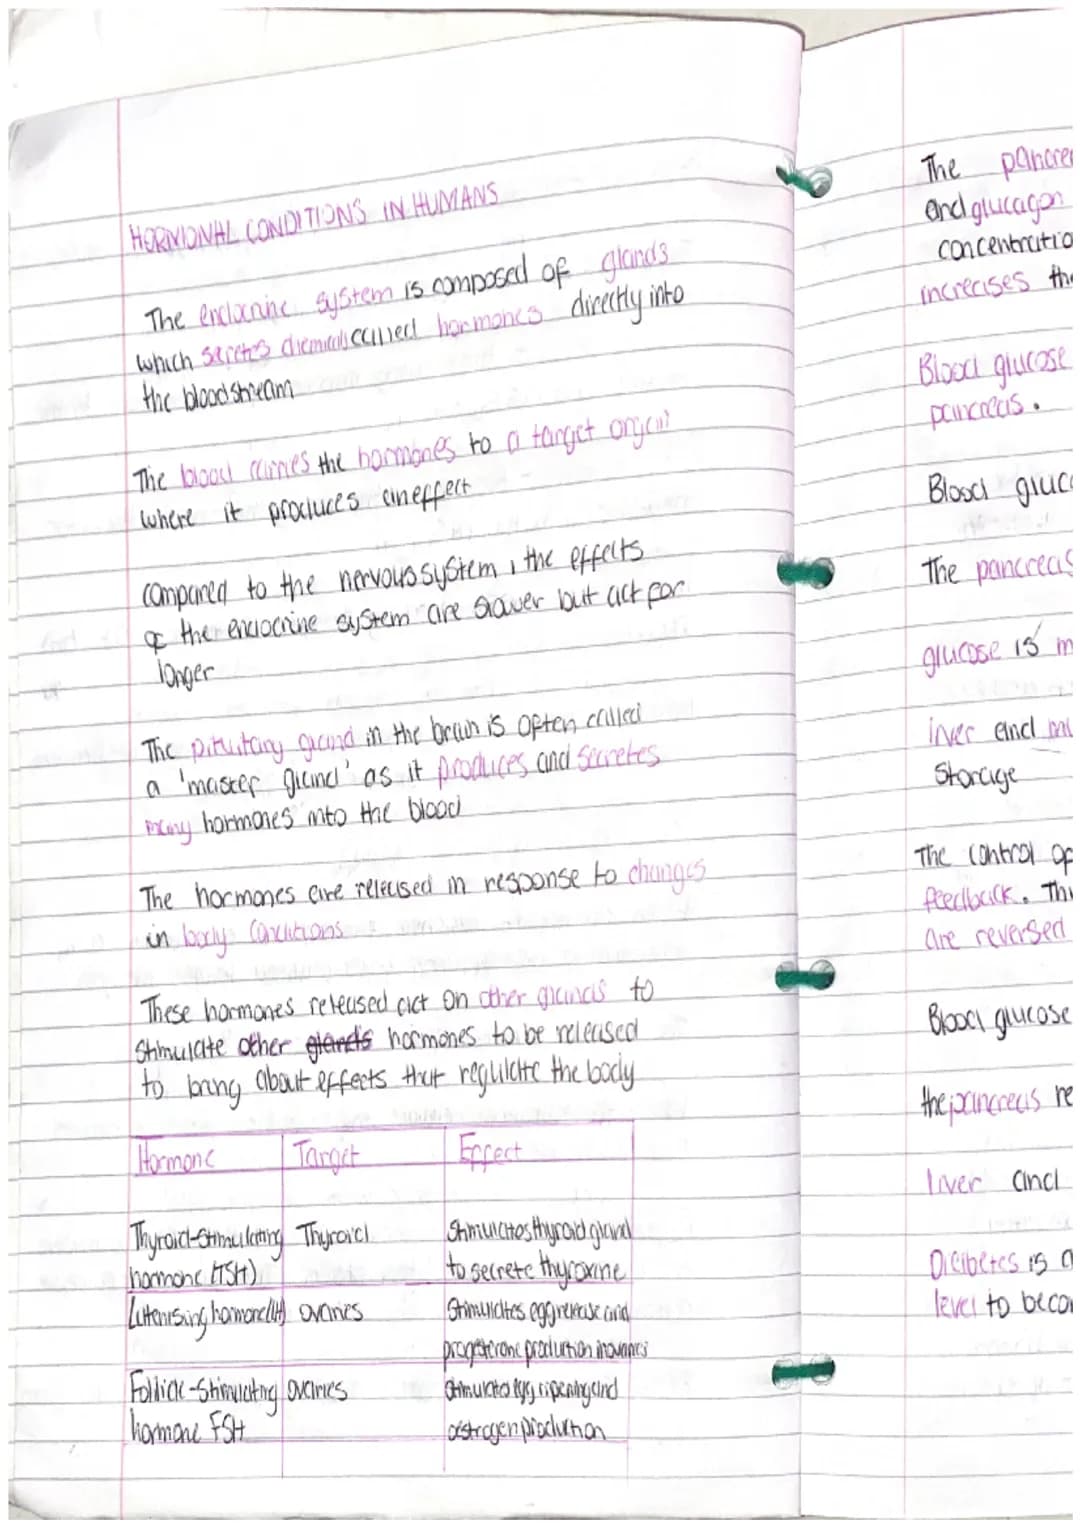 HORMONAL CONDITIONS IN HUMANS
The endocrine system is composed of glands
which secretes chemicals called hormones directly into
the bloodstream
The blood carries the hormones to a target organ
where it produces an effect
compared to the nervous system, the effects
of the endocrine system are slower but act for
longer
The pituitary gland in the brain is often called
a 'master gland' as it produces and secretes
many hormones into the blood
The hormones are released in response to changes
in body conditions
These hormones released act on other glands to
Stimulate other glands hormones to be released
to bring about effects that regulate the body
Hormone Target Effect
Thyroid-Stimulating Thyroid Stimulates thyroid gland
hormone (TSH) to secrete thyroxine
Lutenising hormone(LH) ovaries Stimulates egg release and
progesterone production in ovaries
Follicle-Stimulating ovaries Stimulates egg ripening and
hormone FSH oestrogen production
The pancre
and glucagon
concentratio
increases the
Blood glucose
pancreas.
Blood gluc
The pancreas
glucose is m
liver and mu
Storage
The control of
feedback. Thi
are reversed
Blood glucose
the pancreas re
liver and
Diabetes is a
level to becom